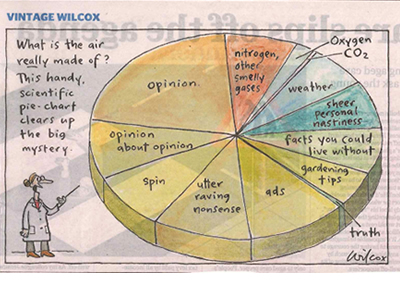 VINTAGE WILCOX
What is the air
really made of?
This handy,
scientific
pie-chart
clears up
the big
mystery.
Opinion
nitrogen,
other
smelly
gases
Oxygen
CO2
weather
sheer
personal
nastiness
facts you could
live without
gardening
tips
truth
ads
utter
raving
nonsense
spin
opinion
about opinion
Wilcox